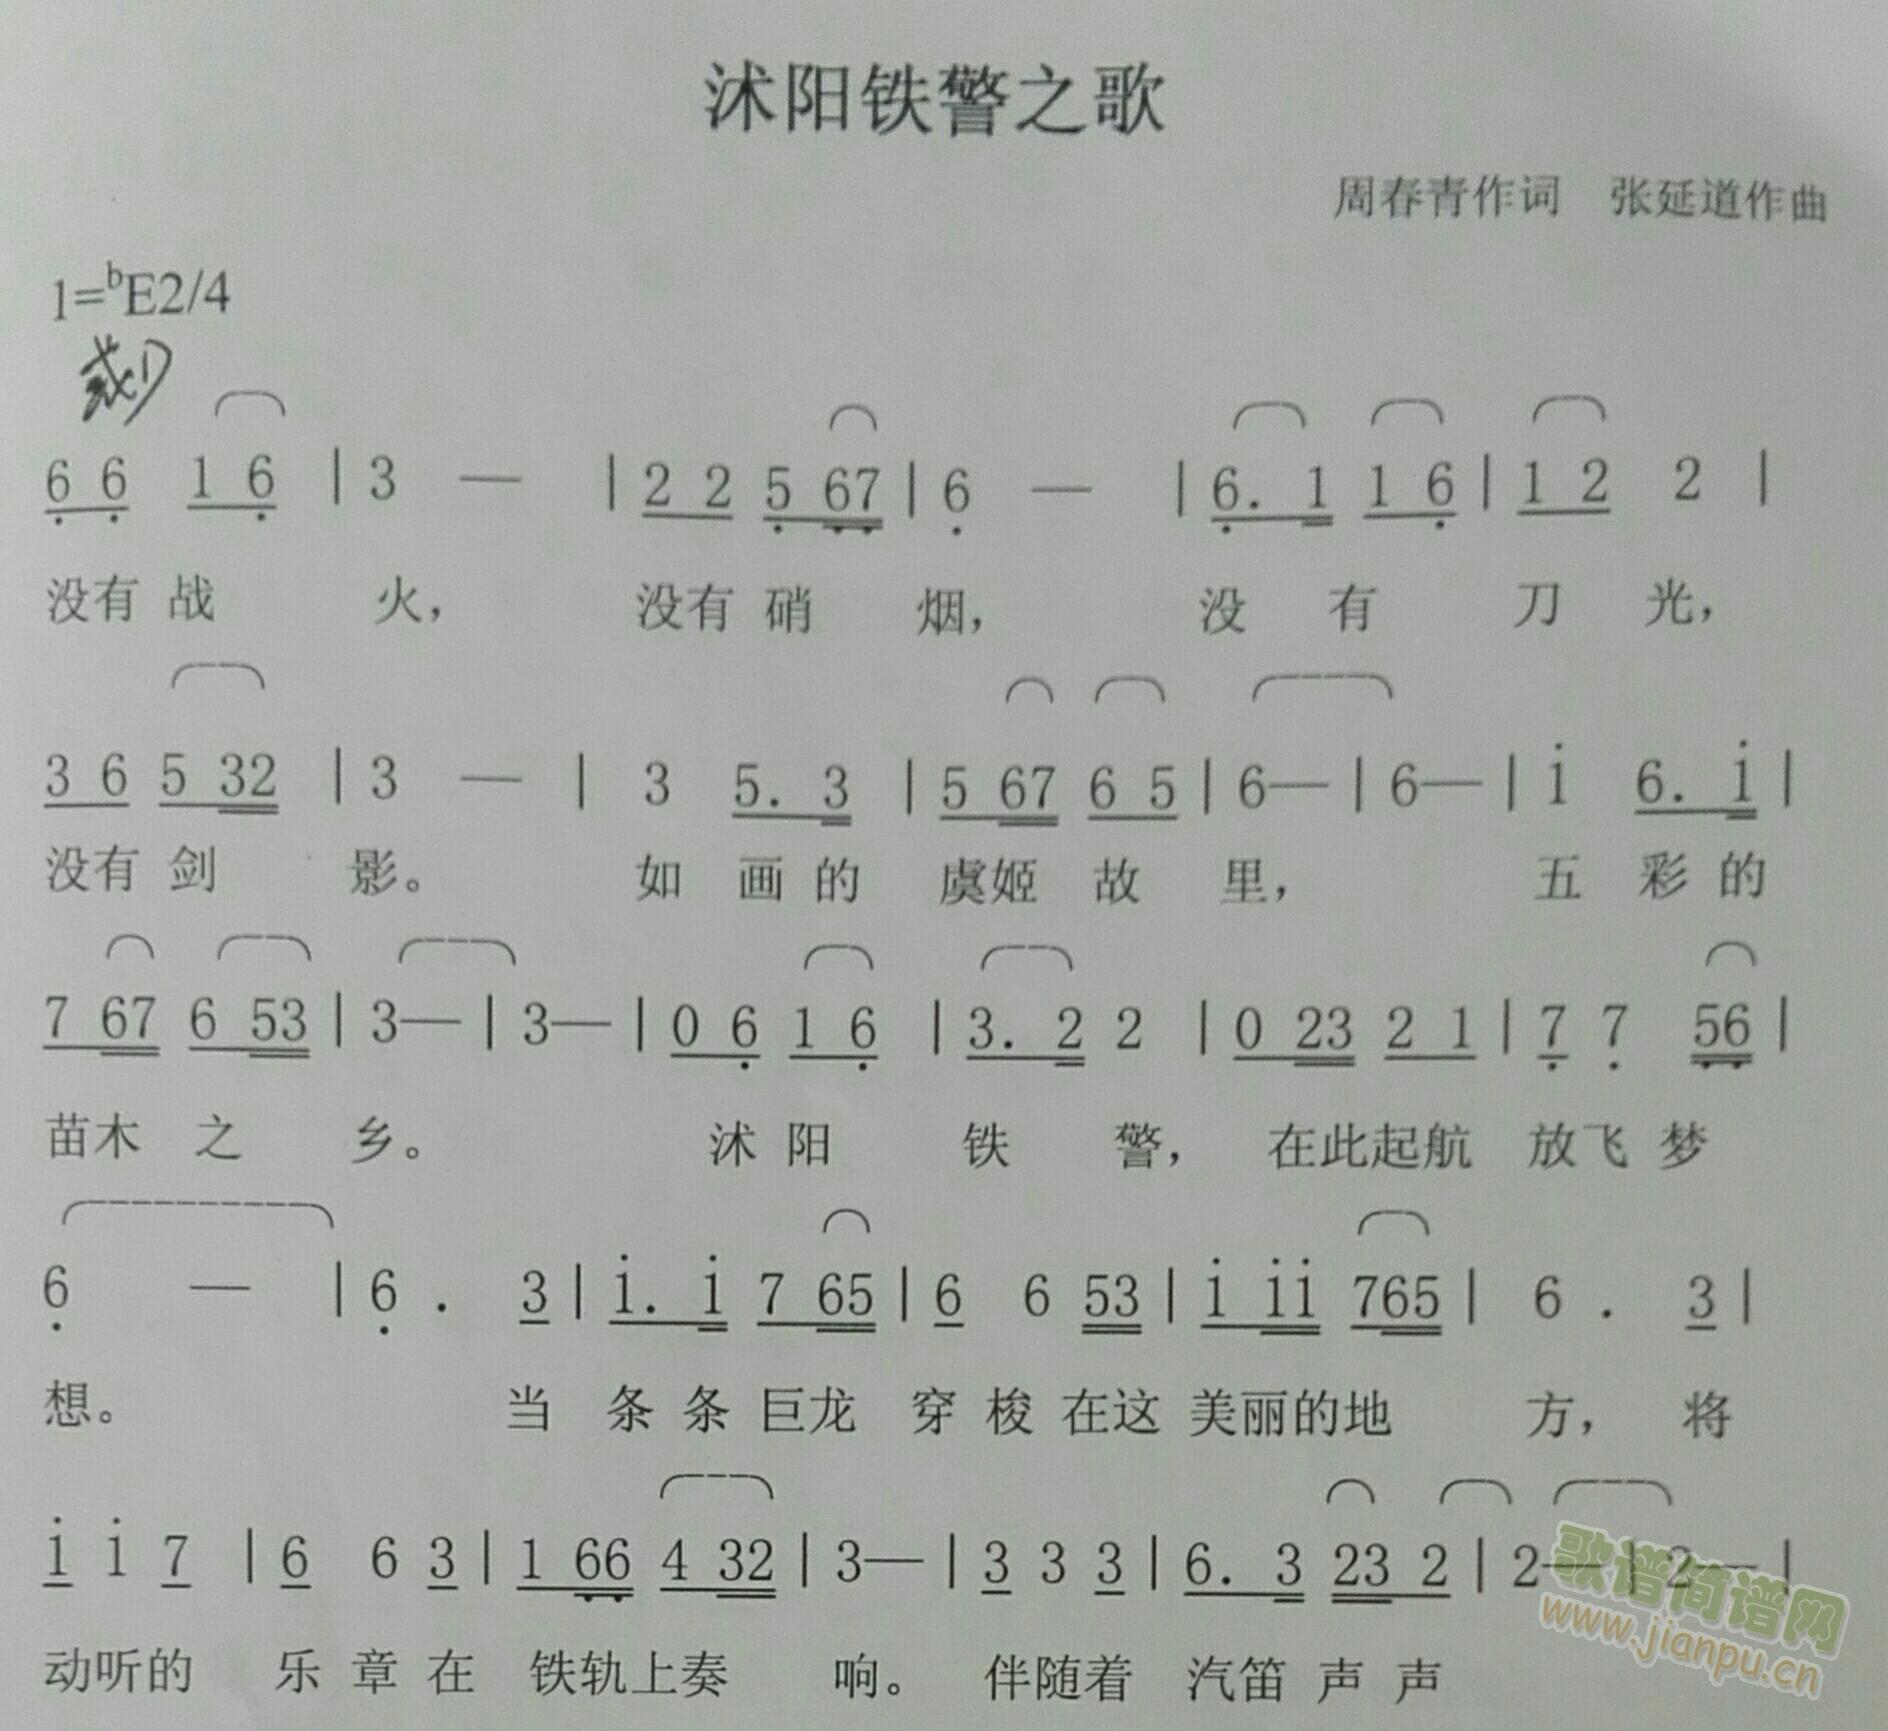 沭阳铁警之歌
周春青作词 张延道作曲
1=ᵇE2/4
6 6 1 6 | 3 — | 2 2 5 67 | 6 — | 6. 1 1 6 | 1 2 2 |
没有 战 火， 没有 硝 烟， 没 有 刀 光，
3 6 5 32 | 3 — | 3 5. 3 | 5 67 6 5 | 6— | 6— | i 6. i |
没有 剑 影。 如 画 的 虞姬 故 里， 五 彩 的
7 67 6 53 | 3— | 3— | 0 6 1 6 | 3. 2 2 | 0 23 2 1 | 7 7 56 |
苗木 之 乡。 沭 阳 铁 警， 在此起航 放飞 梦
6 — | 6 . 3 | i. i 7 65 | 6 6 53 | i ii 765 | 6 . 3 |
想。 当 条 条 巨龙 穿 梭 在这 美丽的地 方， 将
i i 7 | 6 6 3 | 1 66 4 32 | 3— | 3 3 3 | 6. 3 23 2 | 2— | 2— |
动听的 乐 章 在 铁轨上奏 响。 伴随着 汽笛 声 声
歌谱简谱网
www.jianpu.cn